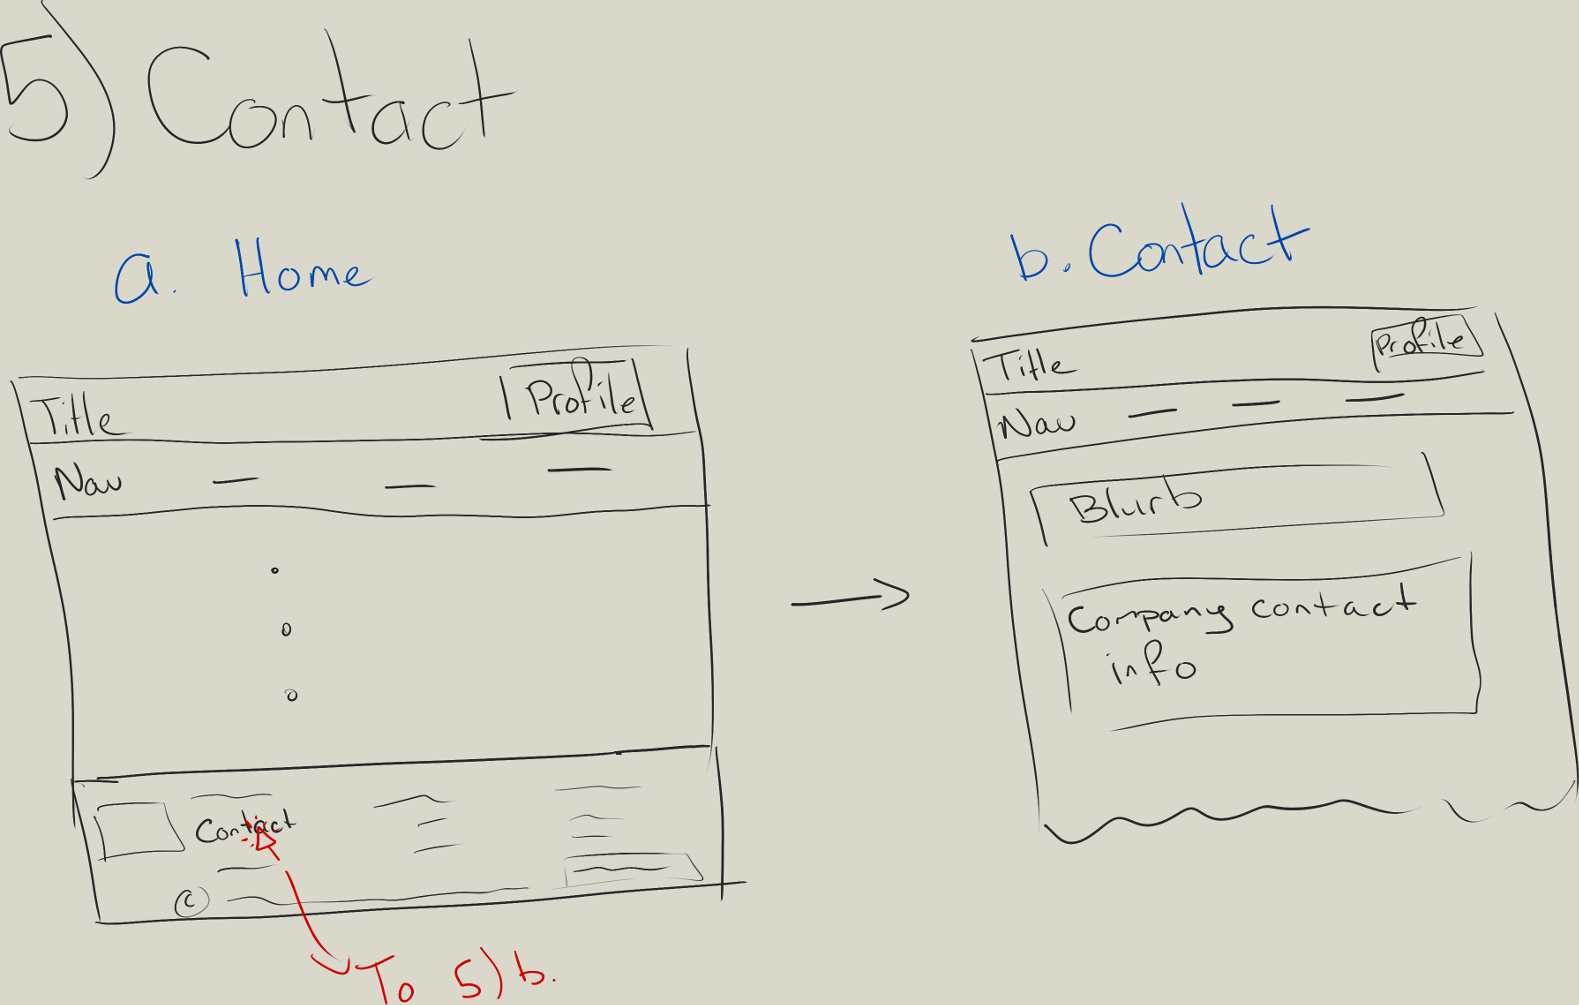 5) Contact
a. Home
Title
Profile
Nav
Contact
©
To 5)b.
b. Contact
Title
Profile
Nav
Blurb
Company contact
info